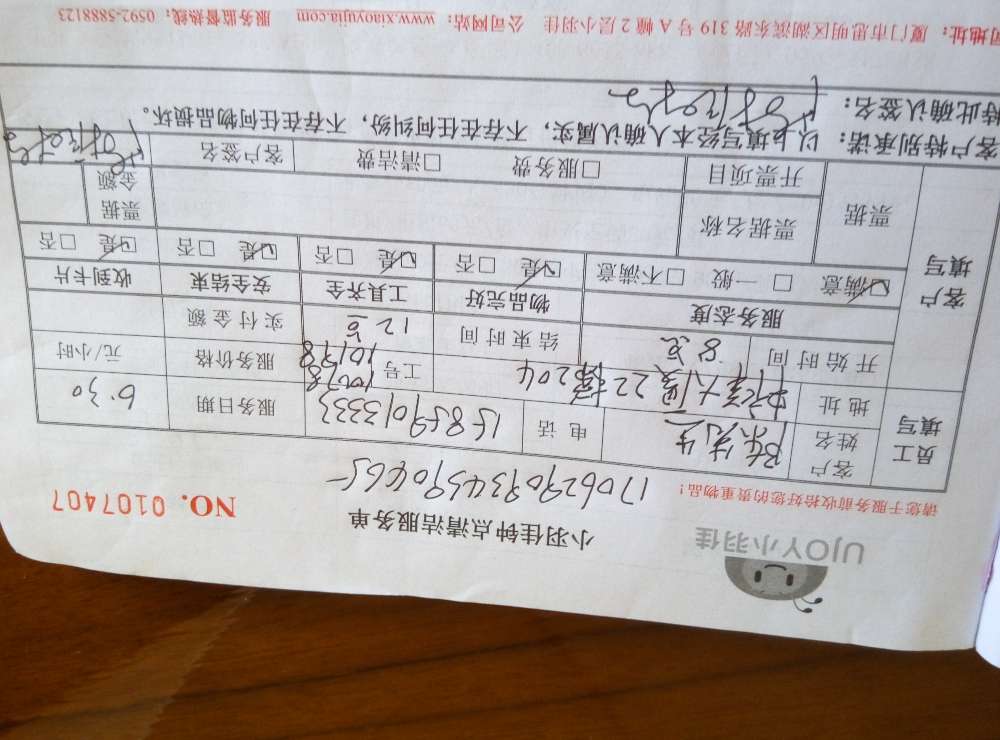 UJOY小羽佳
小羽佳钟点清洁服务单
NO. 0107407
请您于服务前收拾好您的贵重物品!
17062909345904665
员工填写
客户姓名 陈先生 电话 15859013333 服务日期 6.30
地址 22 204 工号 10198 服务价格 元/小时
开始时间 8点 结束时间 12点 实付金额
客户填写
服务态度 物品完好 工具齐全 安全结束 收到卡片
☑满意 □一般 □不满意 ☑是 □否 ☑是 □否 ☑是 □否 ☑是 □否
票据 票据名称 票据金额
开票项目 □服务费 □清洁费 客户签名
客户特别承诺:以上填写经本人确认属实,不存在任何纠纷,不存在任何物品损坏。
特此确认签名:
司地址:厦门市思明区湖滨东路319号A幢2层小羽佳 公司网站:www.xiaoyujia.com 服务监督热线:0592-5888123